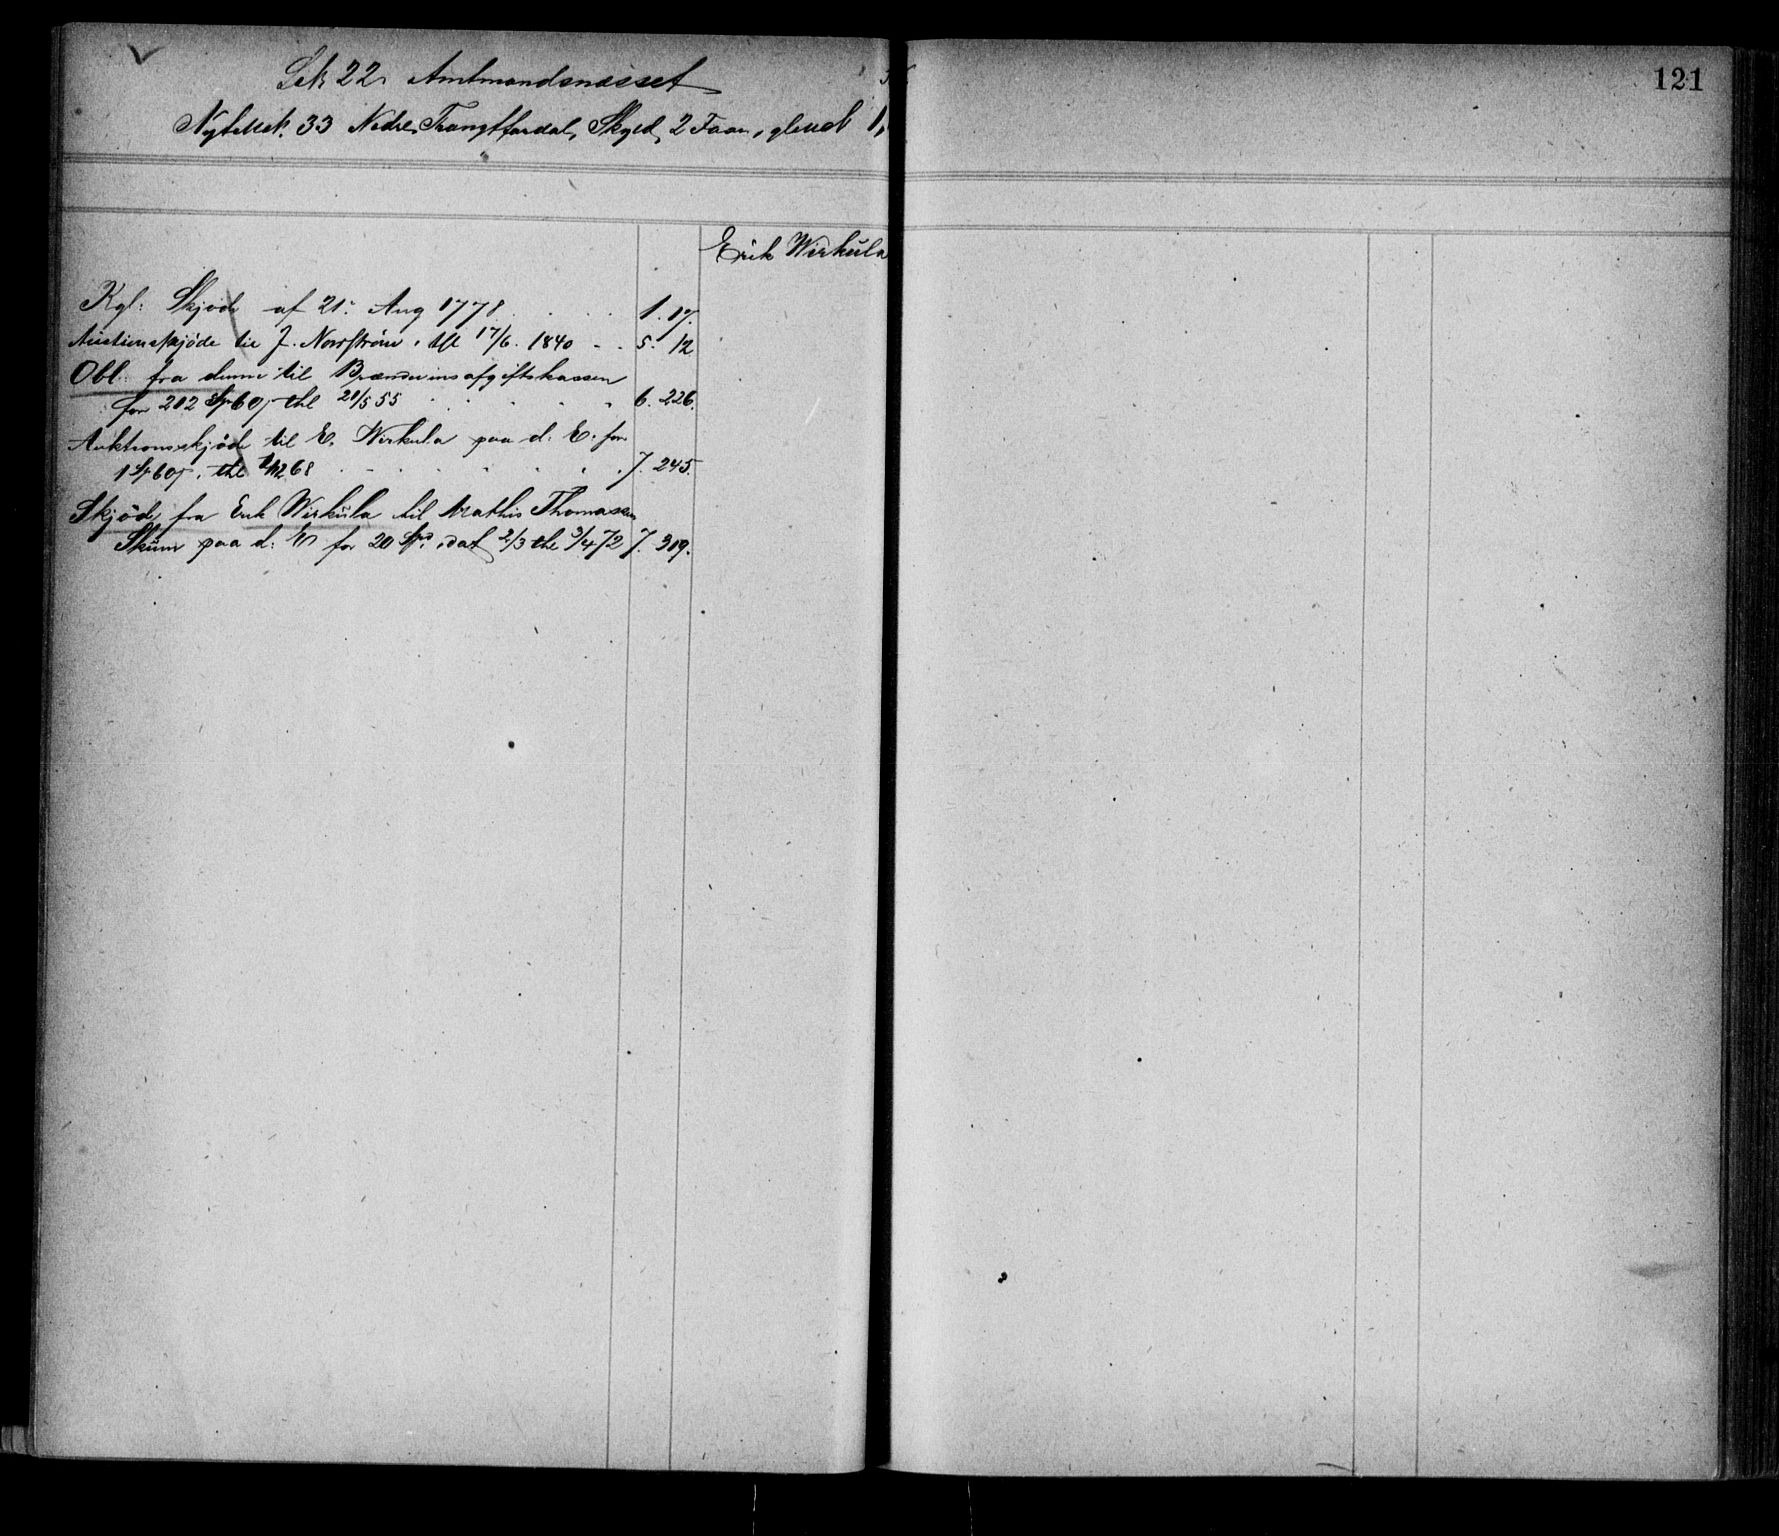 121
Lek 22. Amtmandsnæsset
Nyt Mat. 33 Nedre, Skyld, 2 Faar, gl. Mat 1,
Erik Wirkula
Kgl: Skjøde af 21. Aug 1778 . . . . 1. 17.
Auctionsskjøde til J. Norstrøm, thl 17/6. 1840 . . 5. 12
Obl. fra denne til Brændevinsafgiftskassen
for 202 Sp 60 β thl 21/5 55 . . . . . 6. 226.
Auktionsskjøde til E. Wirkula paa d: E. for
1 Sp 60 β, thl 68 . . . . . . 7. 245.
Skjøde fra Erik Wirkula til Mathis Thomassen
Skum paa d: E for 20 Spd, dat 2/3 thl 3/4 72 7. 309.